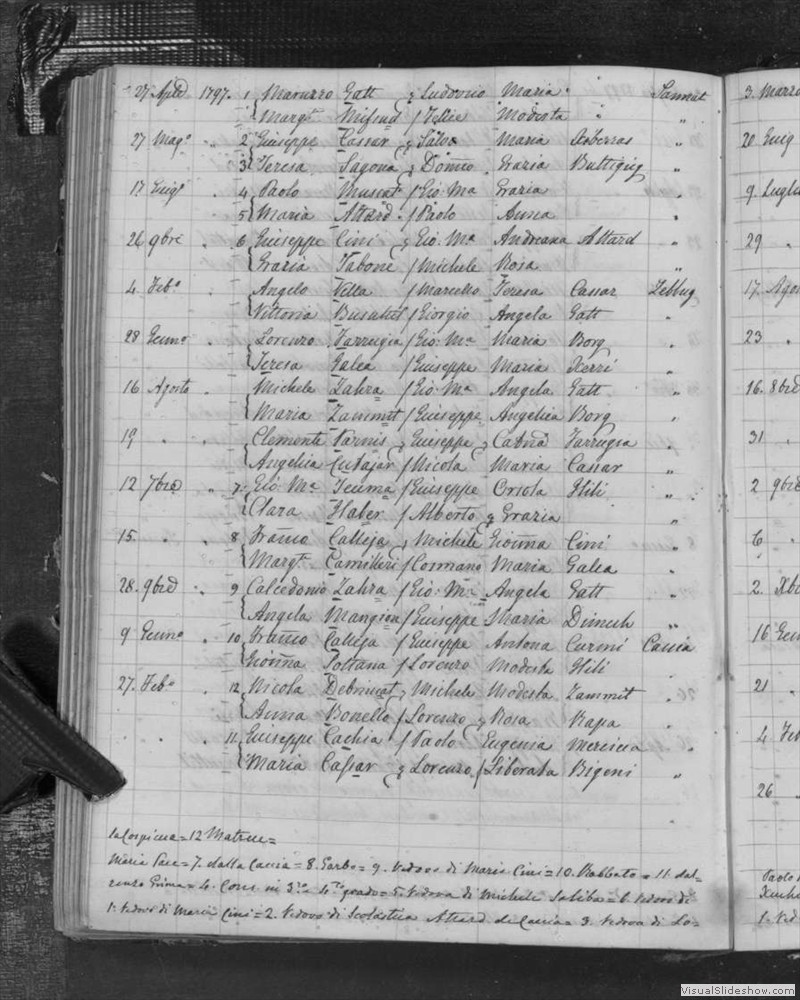 27 Aple 1797. 1 Maruzzo Gatt Ludovico Maria Sannat
Margta Mifsud / Modesta "
27 Mago " 2 Giuseppe Cassar Salvo Maria "
3 Teresa Sagona Domco Grazia Buttigieg "
17 Giugo " 4 Paolo Muscat / Gio: Ma Grazia
5 Maria Attard / Paolo Anna "
26 9bre " 6 Giuseppe Cini Gio: Ma Andreana Attard "
Grazia Tabone / Michele Rosa "
4 Febo " Angelo Vella / Marcello Teresa Cassar Zebbug
Vittoria Busuttil / Giorgio Angela Gatt "
28 Gennо " Lorenzo Farrugia / Gio: Ma Maria Borg "
Teresa Galea / Giuseppe Maria Xerri "
16 Agosto " Michele Zahra / Gio: Ma Angela Gatt
Maria Zammit / Giuseppe Angelica Borg "
19 " " Clemente Farnis Giuseppe Catna Farrugia "
Angelica Cutajar / Nicola Maria Cassar "
12 7bre " 7 Gio: Ma Teuma / Giuseppe Orsola Hili "
Clara Haber / Alberto Grazia "
15. " " 8 Franco Calleja Michele Gionna Cini "
Margta Camilleri / Cosmano Maria Galea "
28. 9bre " 9 Calcedonio Zahra / Gio: Ma Angela Gatt "
Angela Mangion / Giuseppe Maria Dimech "
9 Genno " 10 Franco Calleja / Giuseppe Antona Curmi Caccia
Gionna Soltana / Lorenzo Modesta Hili "
27. Febo " 12 Nicola Debrincat Michele Modesta Zammit "
Anna Bonello / Lorenzo Rosa Rapa "
" " 11 Giuseppe Cachia / Paolo Eugenia Mercieca "
Maria Cassar Lorenzo / Liberata Bigeni "
la Cospicua = 12 Matrue =
Maria Pace = 7. dalla Caccia = 8. Garbo = 9. Vedovo di Maria Cini = 10. Rabbato = 11. del-
renzo Grima = 4. Cons. in 3o 4to grado = 5. Vedova di Michele Saliba = 6. Vedovo di
1. Vedovo di Maria Cini = 2. Vedovo di Scolastica Attard di Caccia = 3. Vedova di Lo=
3. Marzo
20 Giug
9. Luglio
29 "
17. Agos
23 "
16. 8bre
31 "
2 9bre
6 "
2. Xbr
16 Gen
21 "
4 Feb
26 "
Paolo
1. Vedo
VisualSlideshow.com